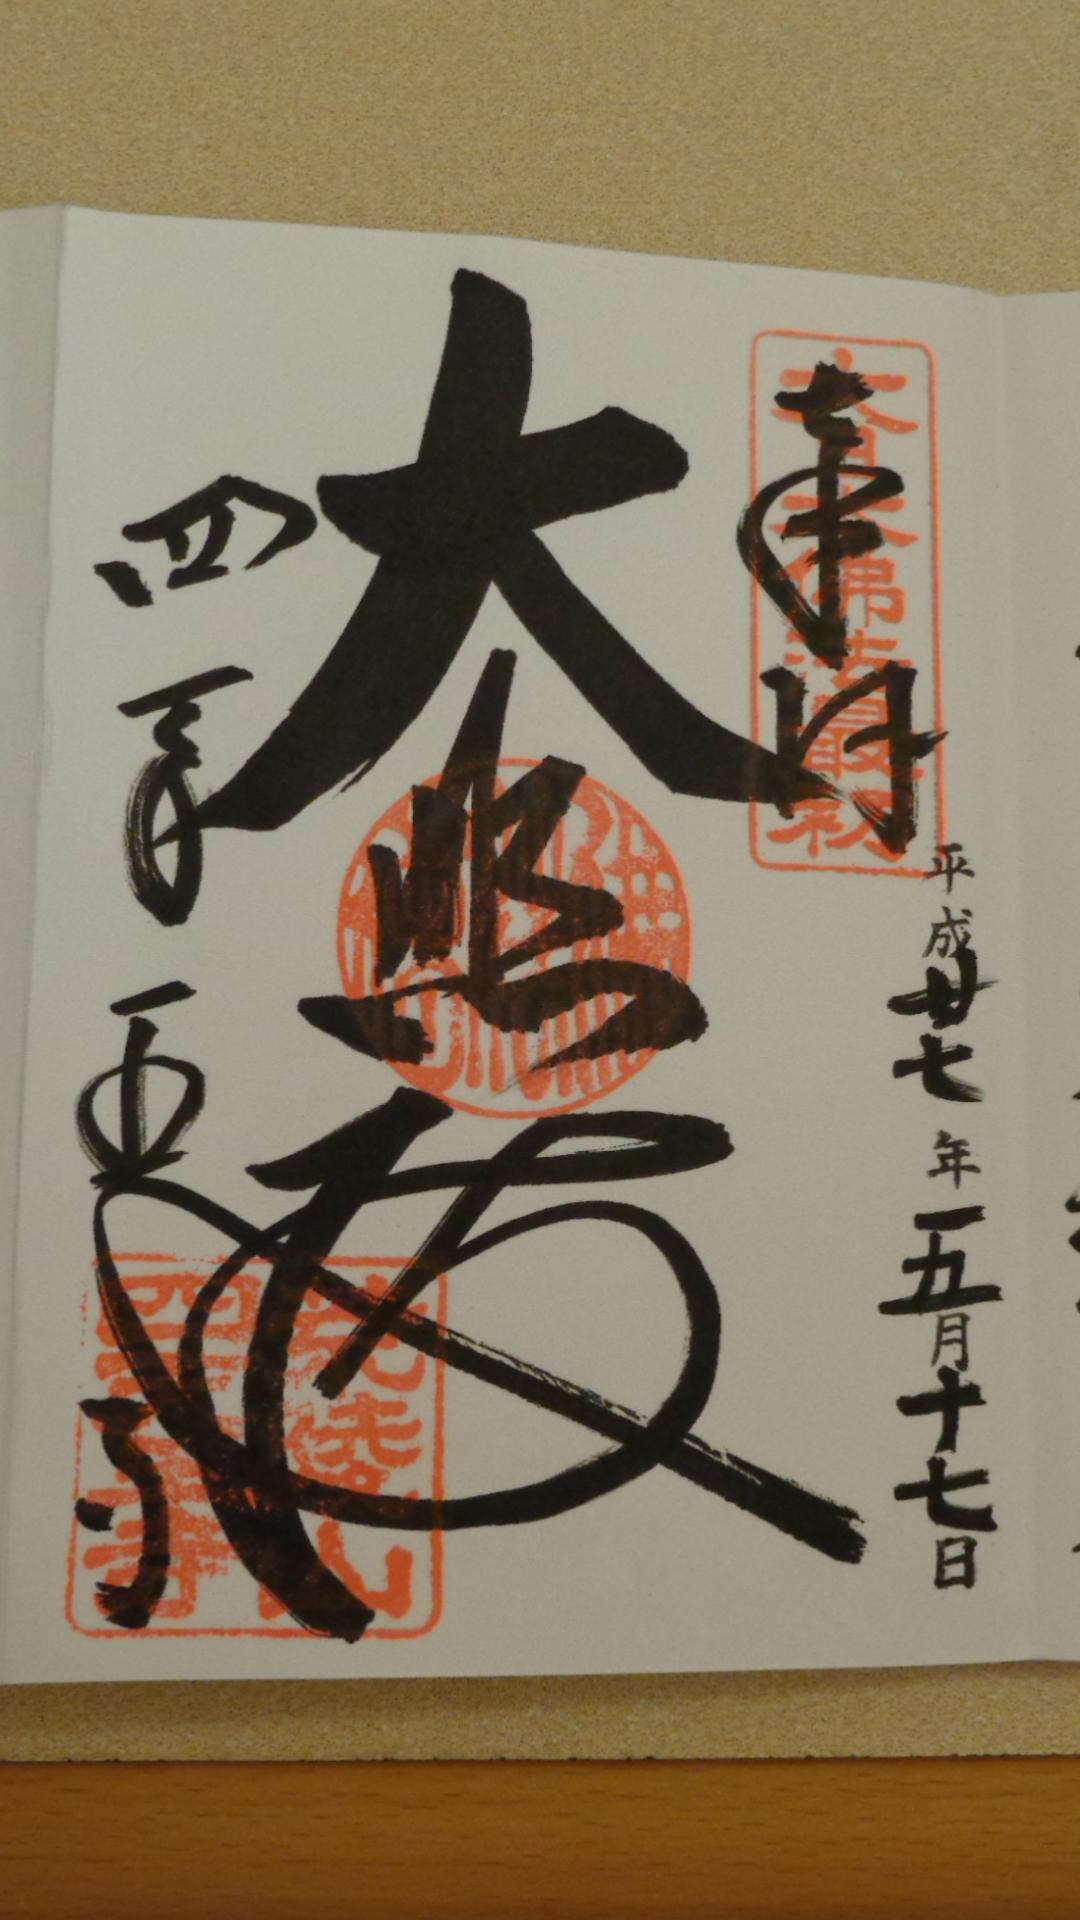 奉拝
大日本佛法最初
平成廿七年五月十七日
大悲殿
荒陵山
四天王寺
四天王寺